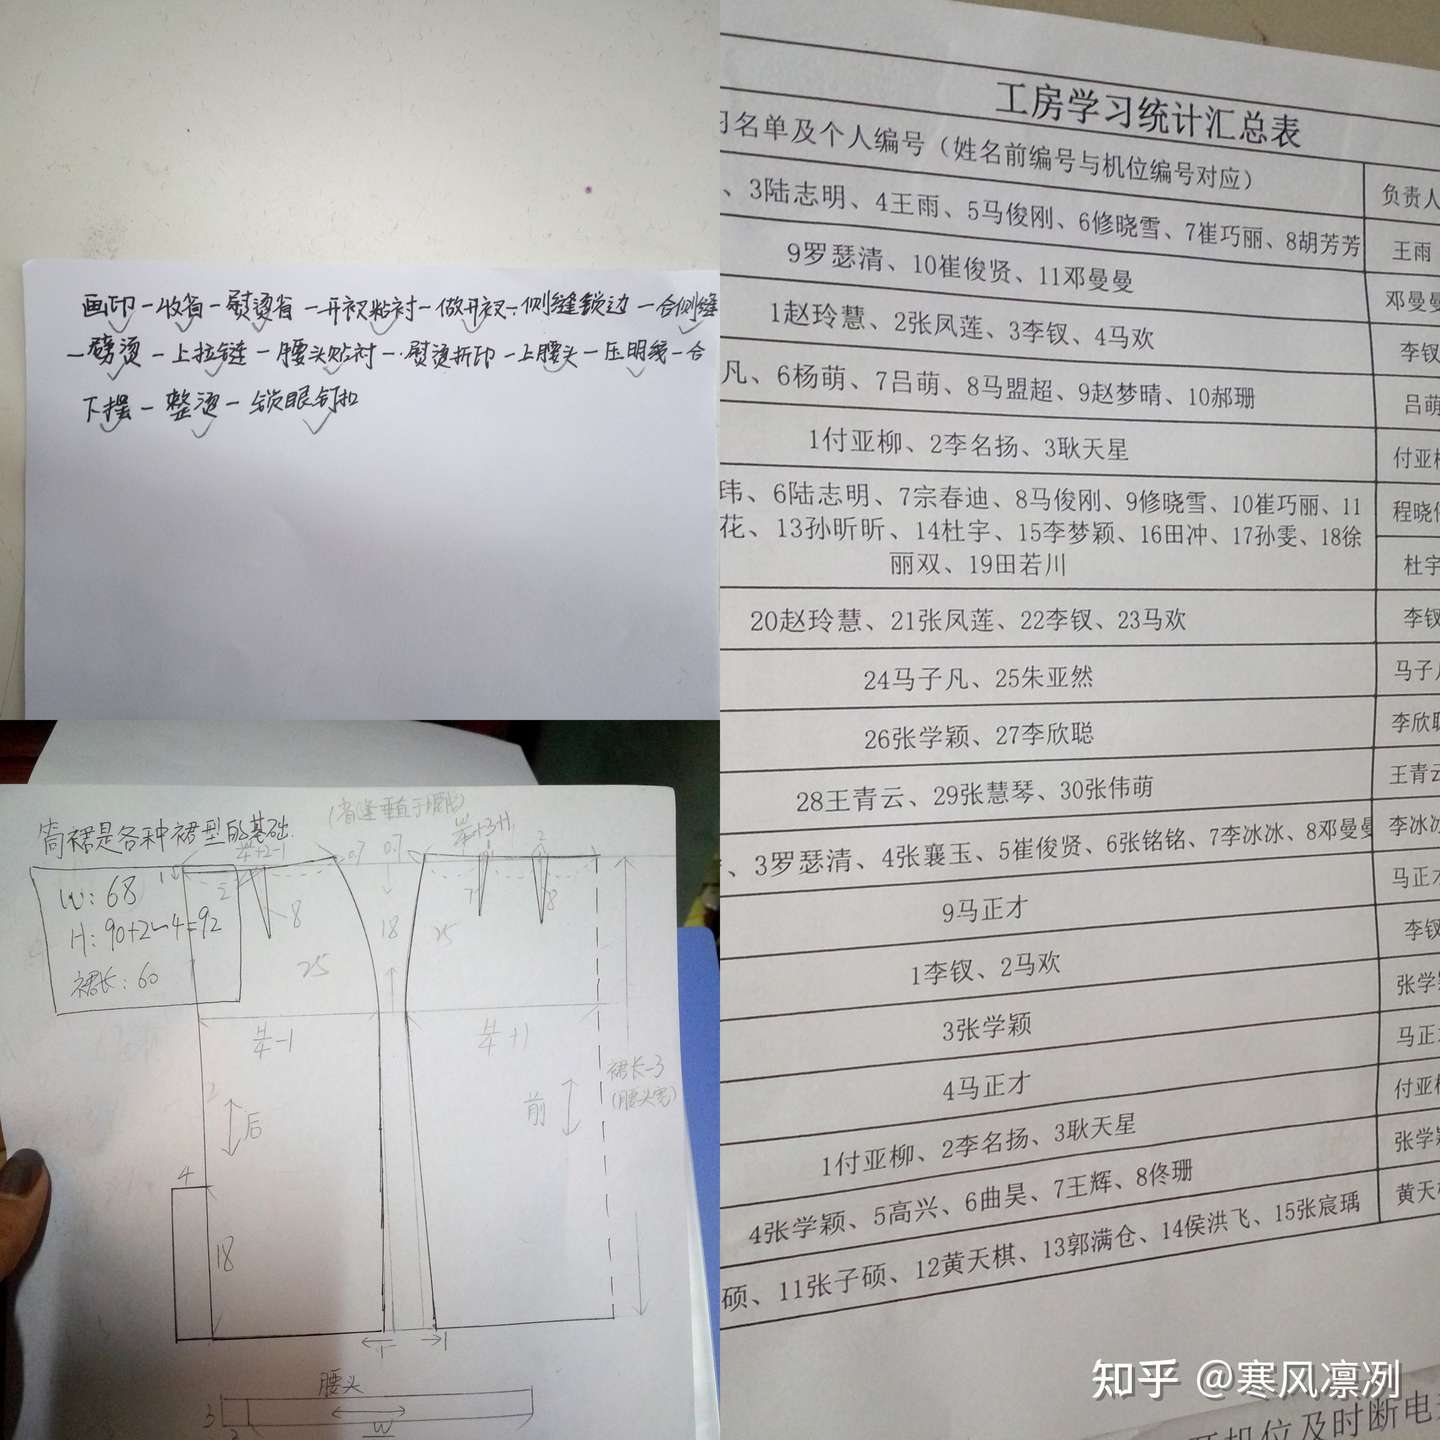 画印一收省一熨烫省一开衩粘衬一做开衩一侧缝锁边一合侧缝
一劈烫一上拉链一腰头贴衬一熨烫折印一上腰头一压明线一合
下摆一整烫一锁眼钉扣
工房学习统计汇总表
名单及个人编号（姓名前编号与机位编号对应）
负责人
、3陆志明、4王雨、5马俊刚、6修晓雪、7崔巧丽、8胡芳芳
王雨
9罗瑟清、10崔俊贤、11邓曼曼
邓曼曼
1赵玲慧、2张凤莲、3李钗、4马欢
李钗
凡、6杨萌、7吕萌、8马盟超、9赵梦晴、10郝珊
吕萌
1付亚柳、2李名扬、3耿天星
付亚
玮、6陆志明、7宗春迪、8马俊刚、9修晓雪、10崔巧丽、11
程晓
花、13孙昕昕、14杜宇、15李梦颖、16田冲、17孙雯、18徐
丽双、19田若川
杜宇
20赵玲慧、21张凤莲、22李钗、23马欢
李钗
24马子凡、25朱亚然
马子
26张学颖、27李欣聪
李欣聪
28王青云、29张慧琴、30张伟萌
王青云
、3罗瑟清、4张襄玉、5崔俊贤、6张铭铭、7李冰冰、8邓曼曼
李冰冰
9马正才
马正才
1李钗、2马欢
李钗
3张学颖
张学
4马正才
马正
1付亚柳、2李名扬、3耿天星
付亚
4张学颖、5高兴、6曲昊、7王辉、8佟珊
张学
硕、11张子硕、12黄天棋、13郭满仓、14侯洪飞、15张宸瑀
黄天
机位及时断电
筒裙是各种裙型的基础.
W：68
H：90+2-4=92
裙长：60
(省缝垂直于腰口)
H/4+2-1
0.7
0.7
W/4+3+1
2
1
2
8
7
8
18
25
25
H/4-1
H/4+1
裙长-3
(腰头宽)
后
前
4
18
1
1
腰头
3
3
W
知乎 @寒风凛冽